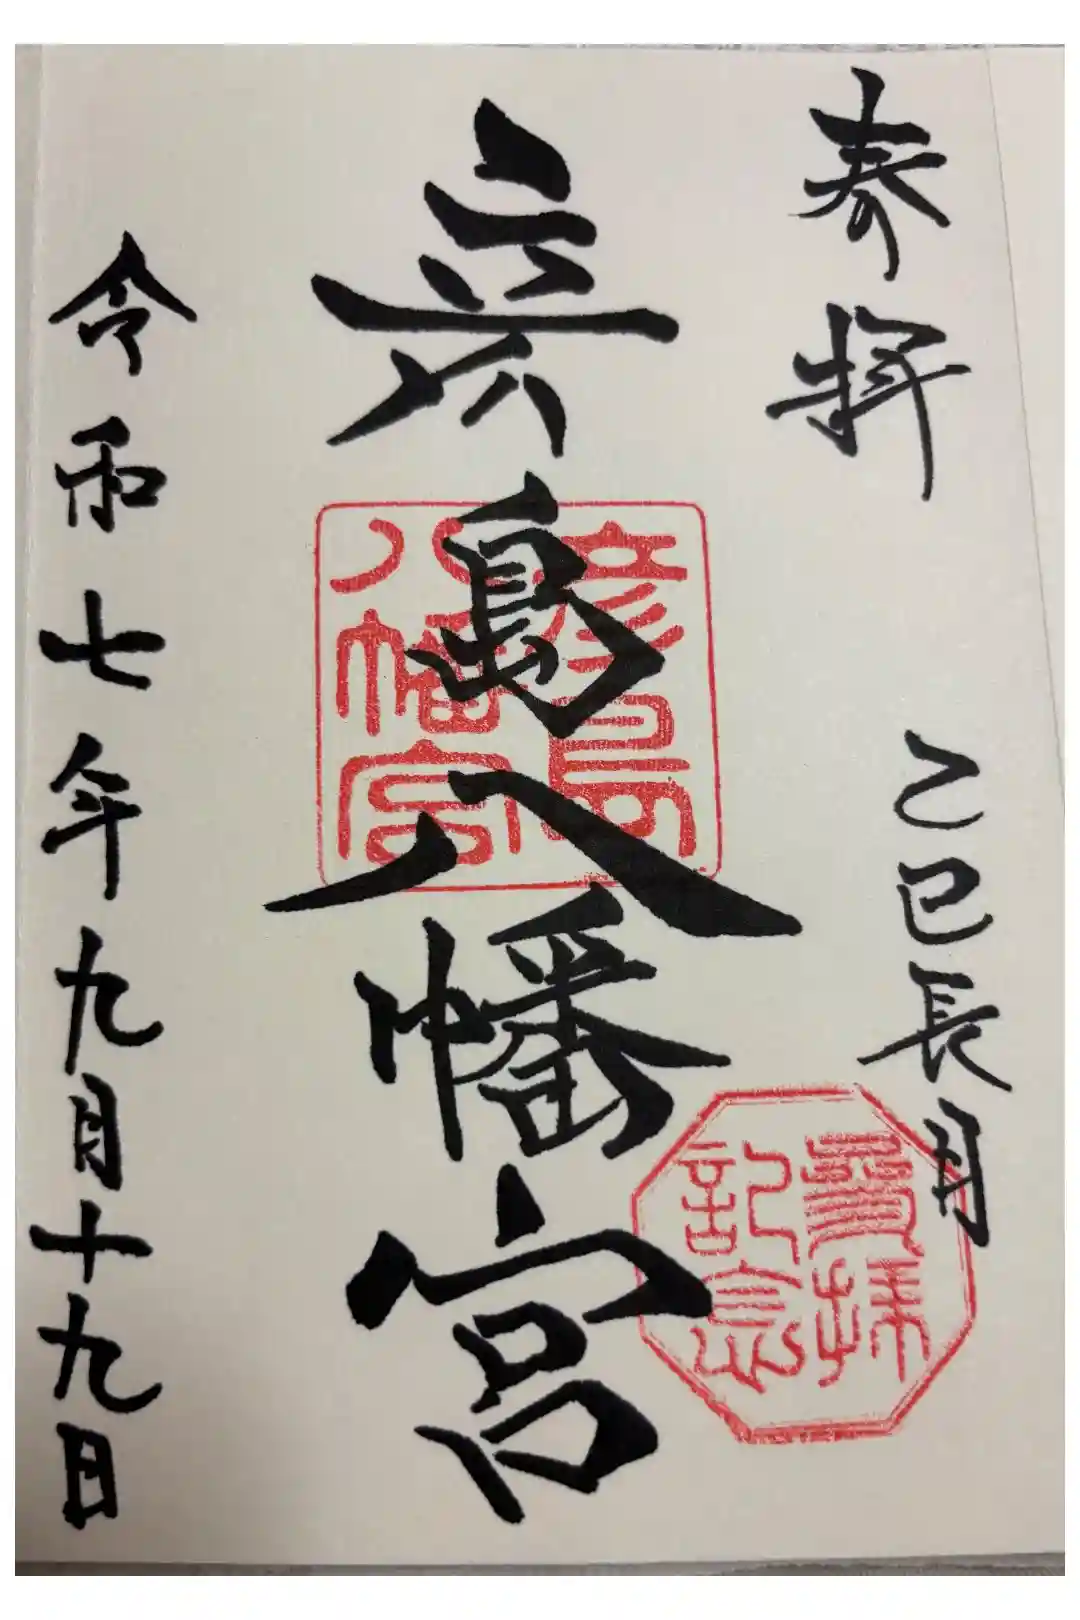 奉拝
乙巳長月
參拝記念
彦島八幡宮
彦島
八幡宮
令和七年九月十九日